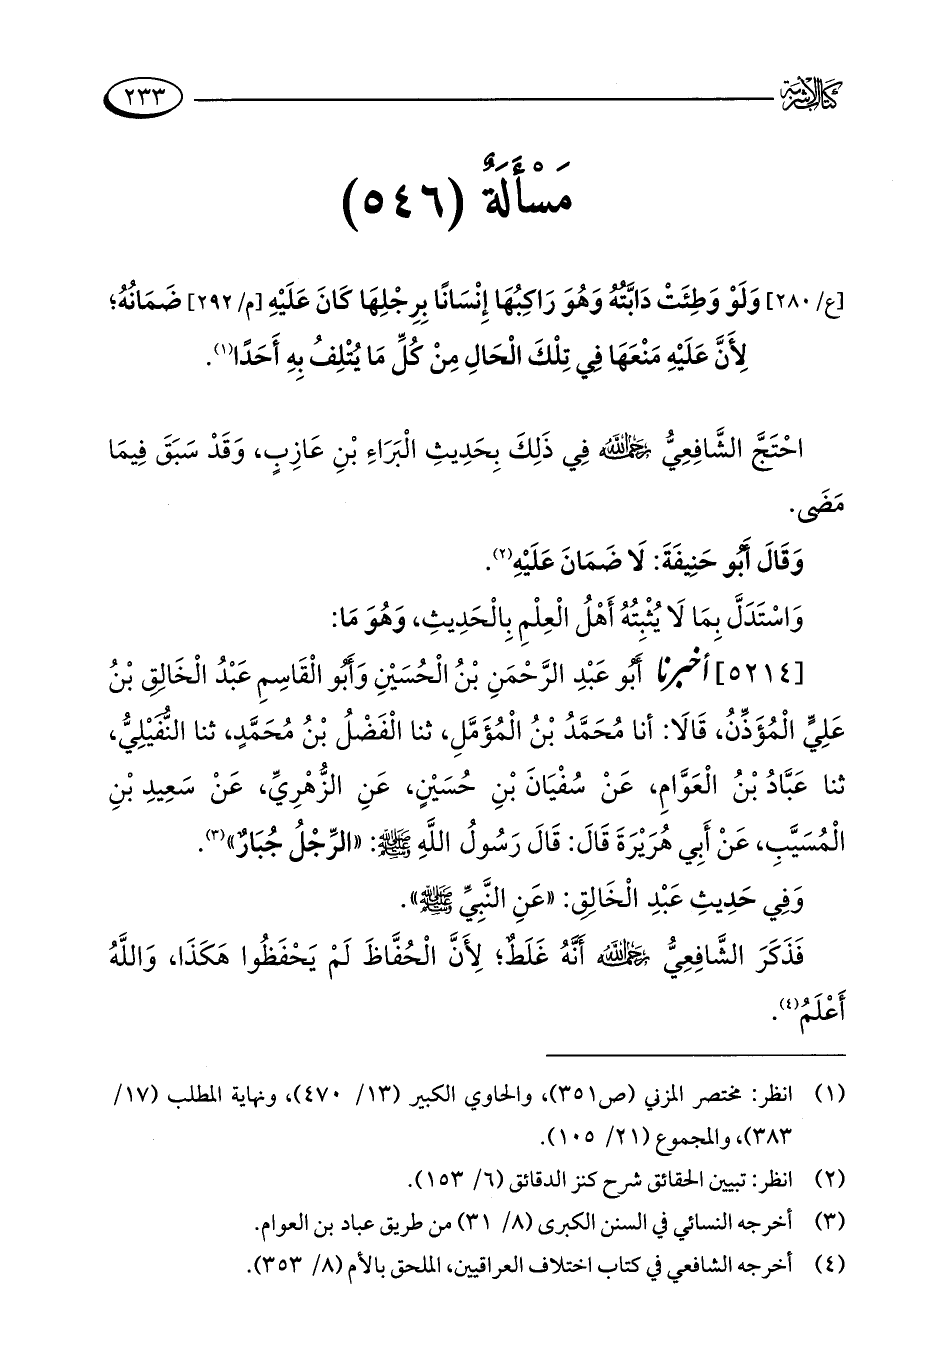 كتاب الأشربة ٢٣٣
مَسْأَلَةٌ (٥٤٦)
[ع/ ٢٨٠] وَلَوْ وَطِئَتْ دَابَّتُهُ وَهُوَ رَاكِبُهَا إِنْسَانًا بِرِجْلِهَا كَانَ عَلَيْهِ [م/ ٢٩٢] ضَمَانُهُ؛
لِأَنَّ عَلَيْهِ مَنْعَهَا فِي تِلْكَ الْحَالِ مِنْ كُلِّ مَا يُتْلِفُ بِهِ أَحَدًا(١).
احْتَجَّ الشَّافِعِيُّ رحمه الله فِي ذَلِكَ بِحَدِيثِ الْبَرَاءِ بْنِ عَازِبٍ، وَقَدْ سَبَقَ فِيمَا
مَضَى.
وَقَالَ أَبُو حَنِيفَةَ: لَا ضَمَانَ عَلَيْهِ(٢).
وَاسْتَدَلَّ بِمَا لَا يُثْبِتُهُ أَهْلُ الْعِلْمِ بِالْحَدِيثِ، وَهُوَ مَا:
[٥٢١٤] أخبرنا أَبُو عَبْدِ الرَّحْمَنِ بْنُ الْحُسَيْنِ وَأَبُو الْقَاسِمِ عَبْدُ الْخَالِقِ بْنُ
عَلِيٍّ الْمُؤَذِّنُ، قَالَا: أنا مُحَمَّدُ بْنُ الْمُؤَمَّلِ، ثنا الْفَضْلُ بْنُ مُحَمَّدٍ، ثنا النُّفَيْلِيُّ،
ثنا عَبَّادُ بْنُ الْعَوَّامِ، عَنْ سُفْيَانَ بْنِ حُسَيْنٍ، عَنِ الزُّهْرِيِّ، عَنْ سَعِيدِ بْنِ
الْمُسَيَّبِ، عَنْ أَبِي هُرَيْرَةَ قَالَ: قَالَ رَسُولُ اللَّهِ ﷺ: «الرِّجْلُ جُبَارٌ»(٣).
وَفِي حَدِيثِ عَبْدِ الْخَالِقِ: «عَنِ النَّبِيِّ ﷺ».
فَذَكَرَ الشَّافِعِيُّ رحمه الله أَنَّهُ غَلَطٌ؛ لِأَنَّ الْحُفَّاظَ لَمْ يَحْفَظُوا هَكَذَا، وَاللَّهُ
أَعْلَمُ(٤).
(١) انظر: مختصر المزني (ص٣٥١)، والحاوي الكبير (١٣/ ٤٧٠)، ونهاية المطلب (١٧/
٣٨٣)، والمجموع (٢١/ ١٠٥).
(٢) انظر: تبيين الحقائق شرح كنز الدقائق (٦/ ١٥٣).
(٣) أخرجه النسائي في السنن الكبرى (٨/ ٣١) من طريق عباد بن العوام.
(٤) أخرجه الشافعي في كتاب اختلاف العراقيين، الملحق بالأم (٨/ ٣٥٣).